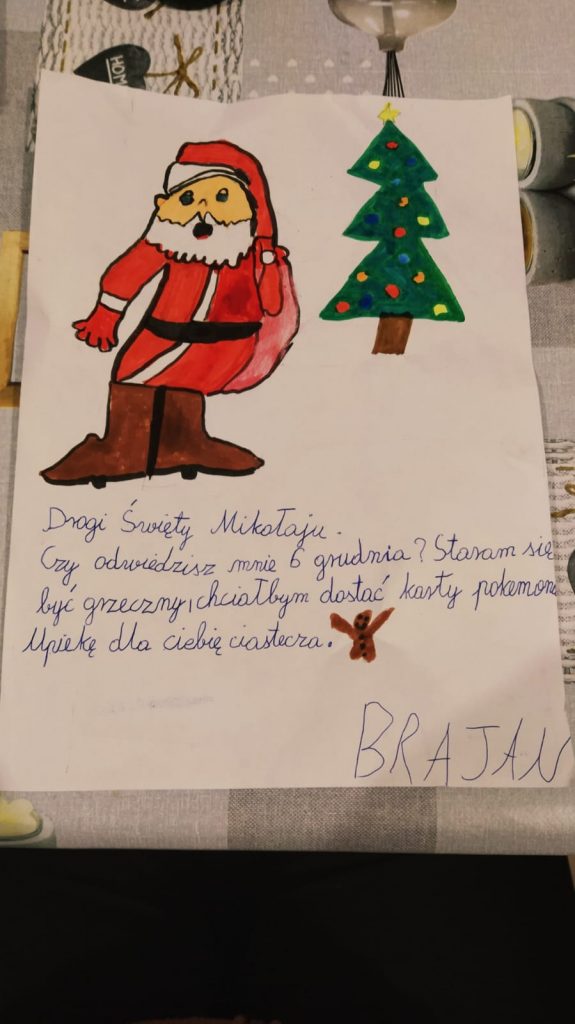 HOM
Drogi Święty Mikołaju.
Czy odwiedzisz mnie 6 grudnia? Staram się
być grzeczny, chciałbym dostać karty pokemon
Upiekę dla ciebię ciastecza.
BRAJAN